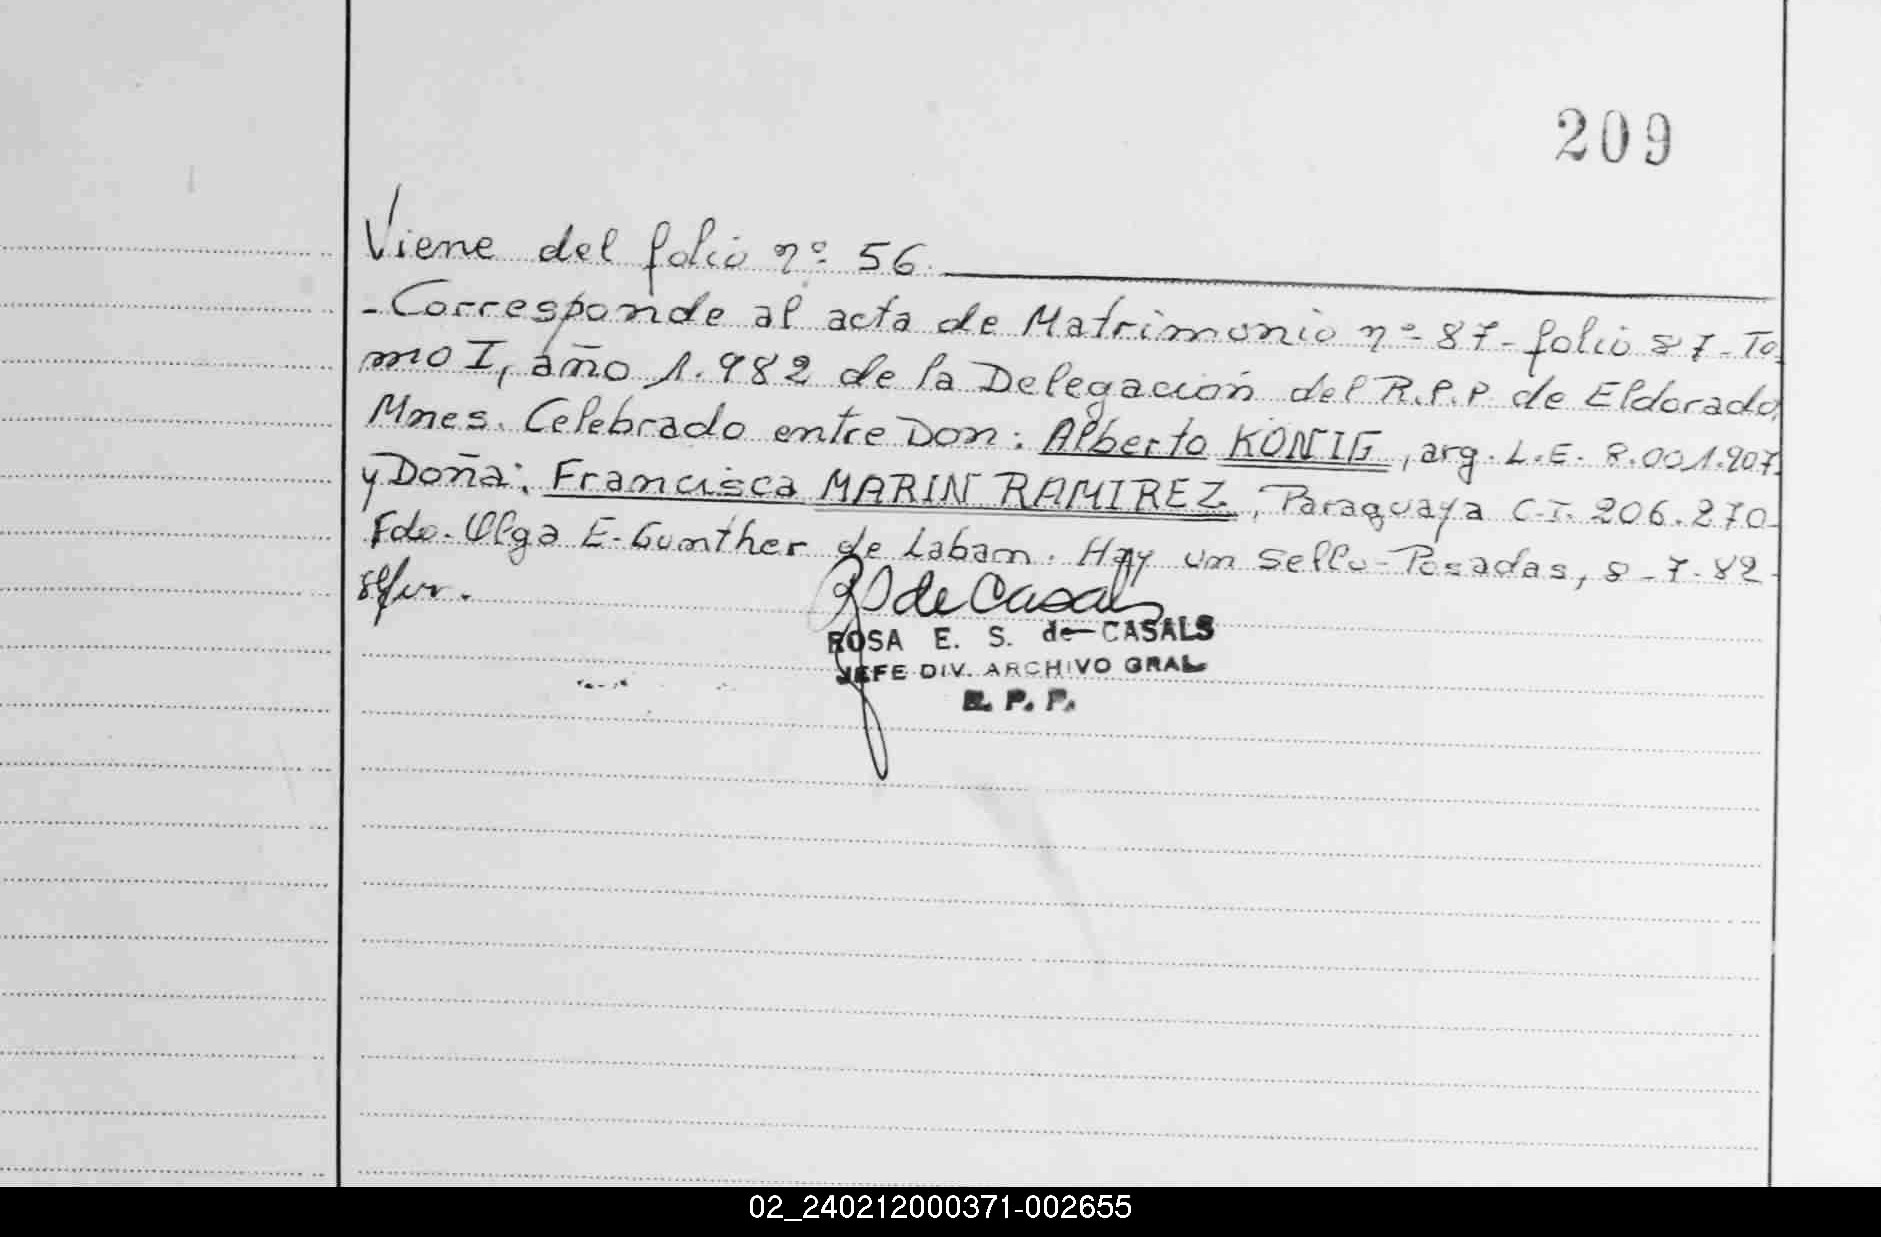 209
Viene del folio nº 56.
- Corresponde al acta de Matrimonio nº 87 - folio 87 - To-
mo I, año 1.982 de la Delegación del R.P.P. de Eldorado,
Mnes. Celebrado entre Don: Alberto KÖNIG, arg. L.E. 8.001.907
y Doña: Francisca MARIN RAMIREZ, Paraguaya C.I. 206.270-
Fdo. Olga E. Gunther de Labam. Hay un sello - Posadas, 8-7-82-
R S de Casals
ROSA E. S. de CASALS
JEFE DIV. ARCHIVO GRAL
R. P. P.
02_240212000371-002655